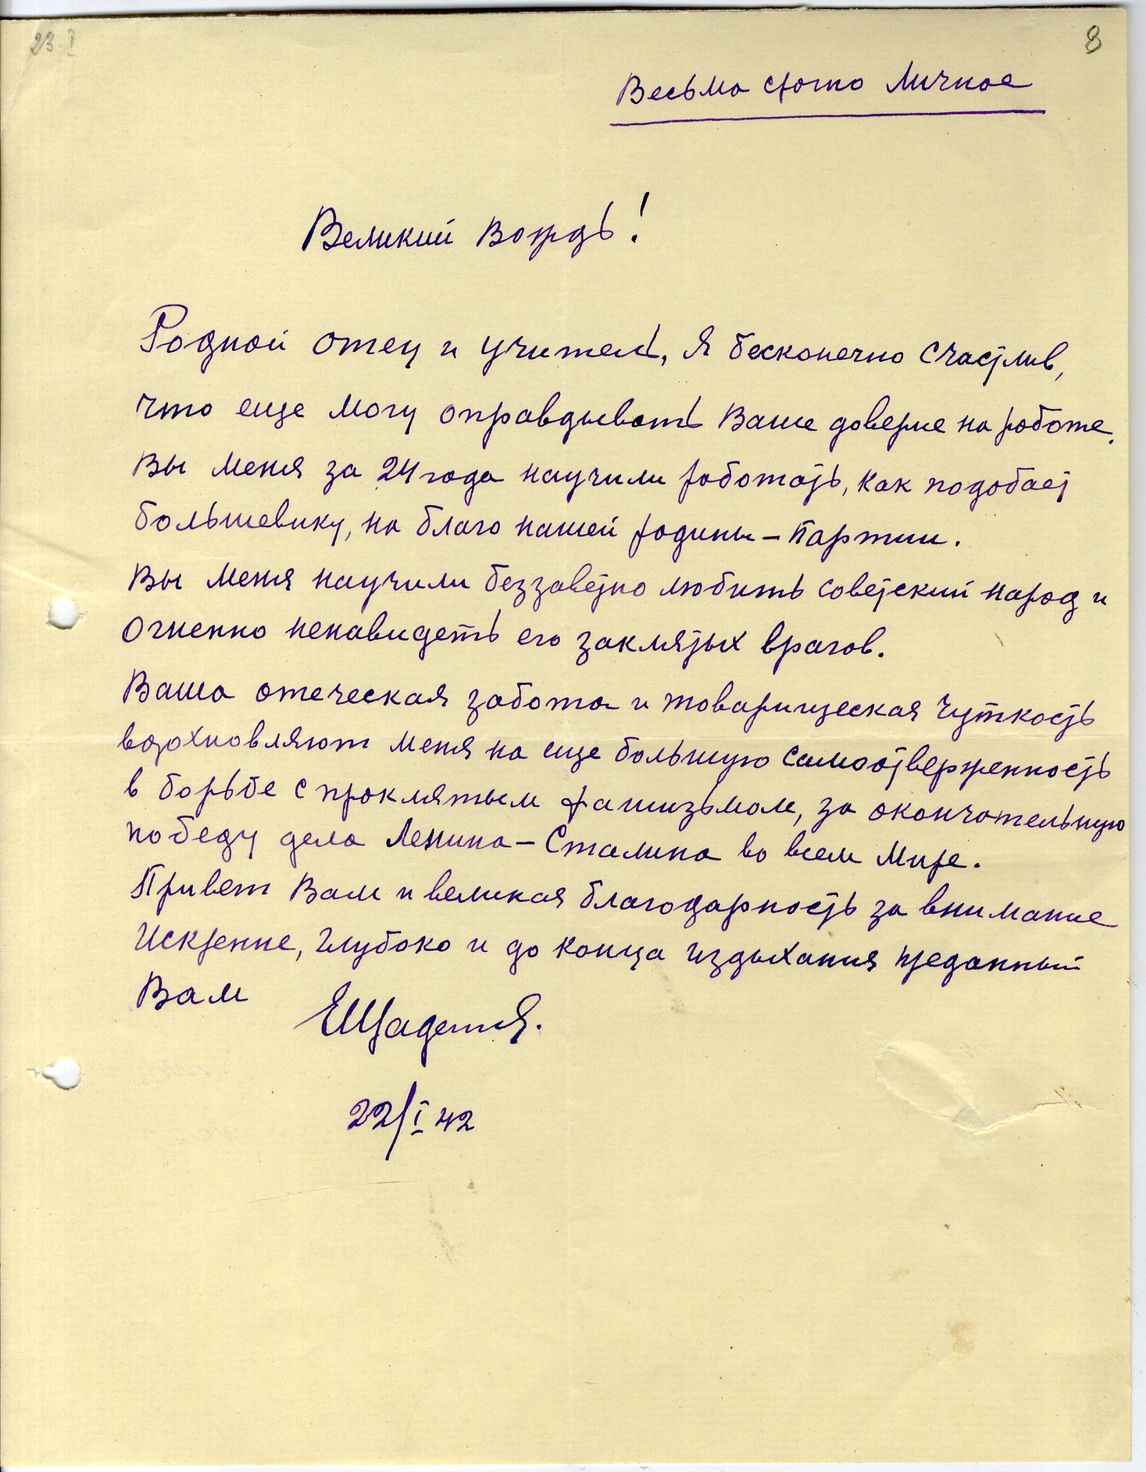 23 I
8
Весьма строго Личное
Великий Вождь!
Родной отец и учитель, Я бесконечно счастлив,
что еще могу оправдывать Ваше доверие на работе.
Вы меня за 24 года научили работать, как подобает
большевику, на благо нашей родины – партии.
Вы меня научили беззаветно любить советский народ и
огненно ненавидеть его заклятых врагов.
Ваша отеческая забота и товарищеская чуткость
вдохновляют меня на еще большую самоотверженность
в борьбе с проклятым фашизьмом, за окончательную
победу дела Ленина – Сталина во всем мире.
Привет Вам и великая благодарность за внимание
Искренне, глубоко и до конца издыхания преданный
Вам
ЕЩаденко.
22/I 42